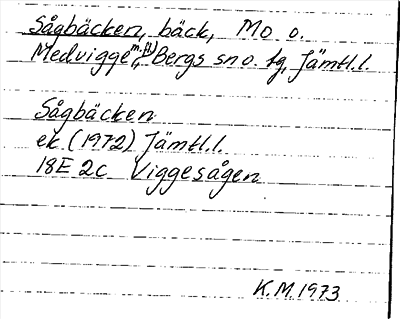 Sågbäcken, bäck, Mo o.
Medvigge, Bergs sn o. tg, Jämtl.l.
Sågbäcken
ek (1972) Jämtl.l.
18E 2c Viggesågen
K.M. 1973